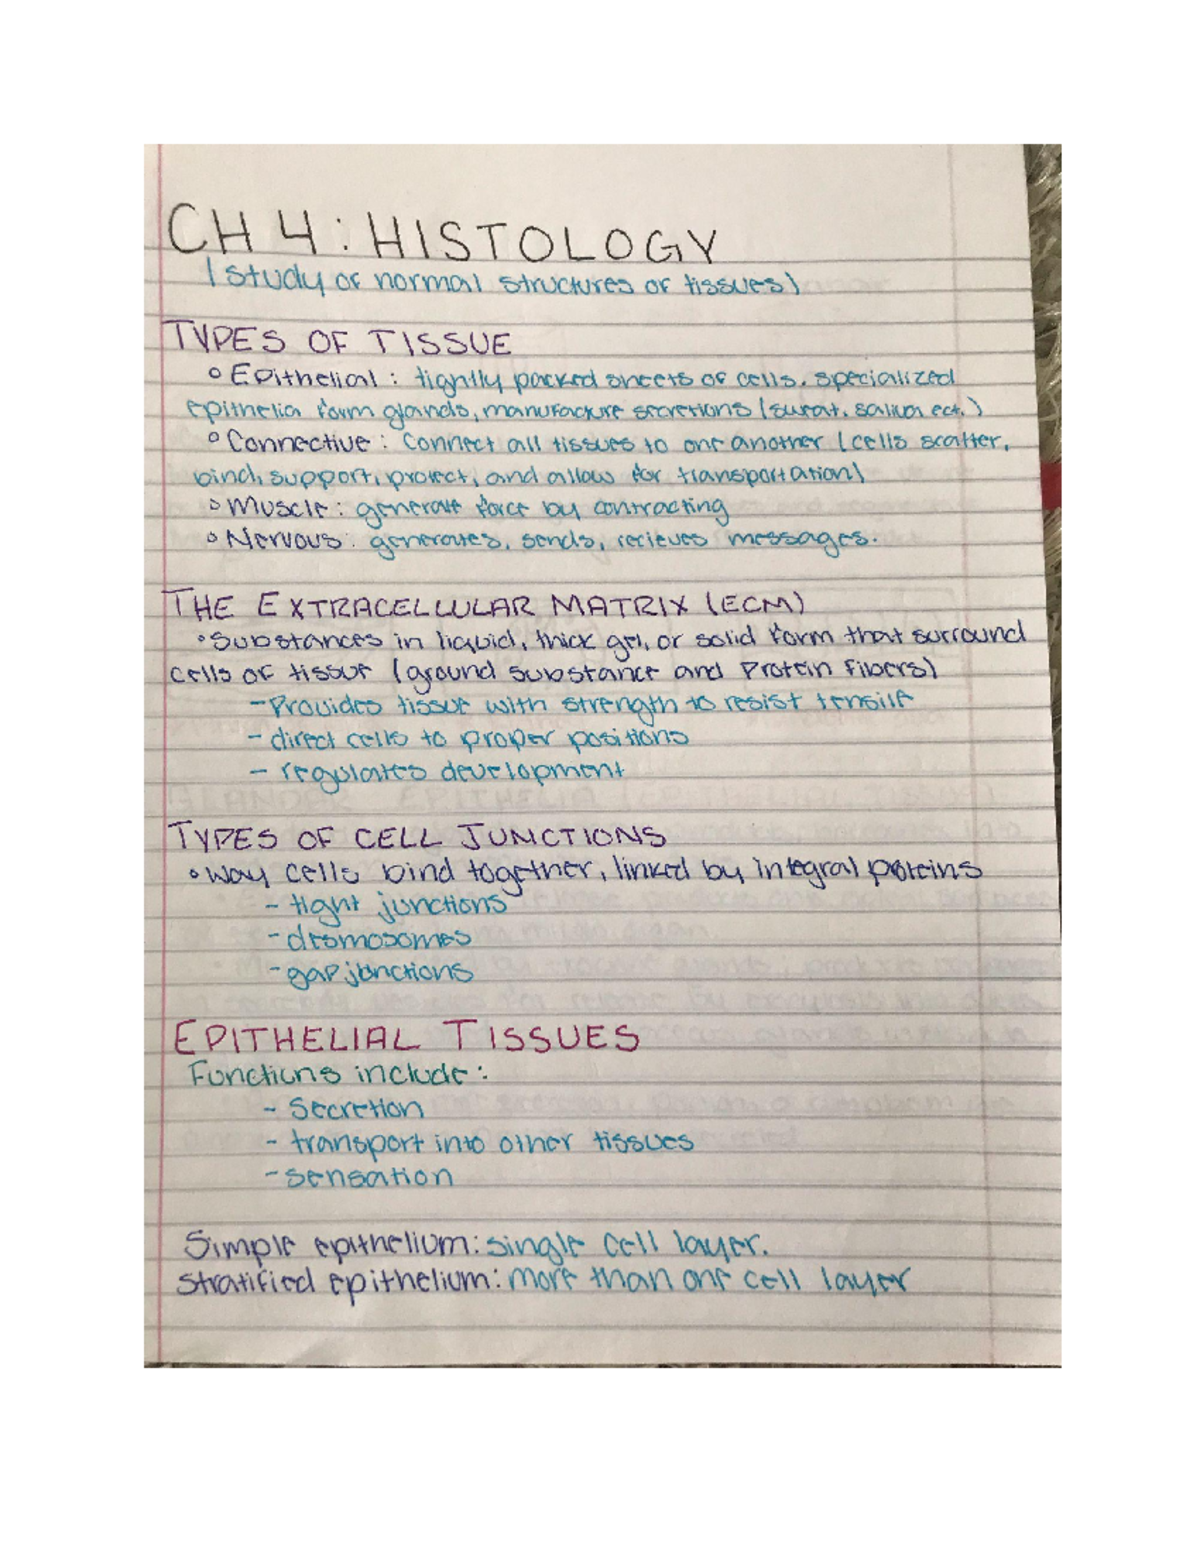 CH 4: HISTOLOGY
(study of normal structures of tissues)
TYPES OF TISSUE
° Epithelial: tightly packed sheets of cells. specialized
epithelia form glands, manufacture secretions (sweat, saliva ect.)
° Connective: Connect all tissues to one another (cells scatter,
bind, support, protect, and allow for transportation)
° Muscle: generate force by contracting
° Nervous: generates, sends, recieves messages.
THE EXTRACELLULAR MATRIX (ECM)
° Substances in liquid, thick gel, or solid form that surround
cells of tissue (ground substance and Protein Fibers)
- Provides tissue with strength to resist tensile
- direct cells to proper positions
- regulates development
TYPES OF CELL JUNCTIONS
° Way cells bind together, linked by integral proteins
- tight junctions
- desmosomes
- gap junctions
EPITHELIAL TISSUES
Functions include:
- Secretion
- transport into other tissues
- sensation
Simple epithelium: single cell layer.
Stratified epithelium: more than one cell layer